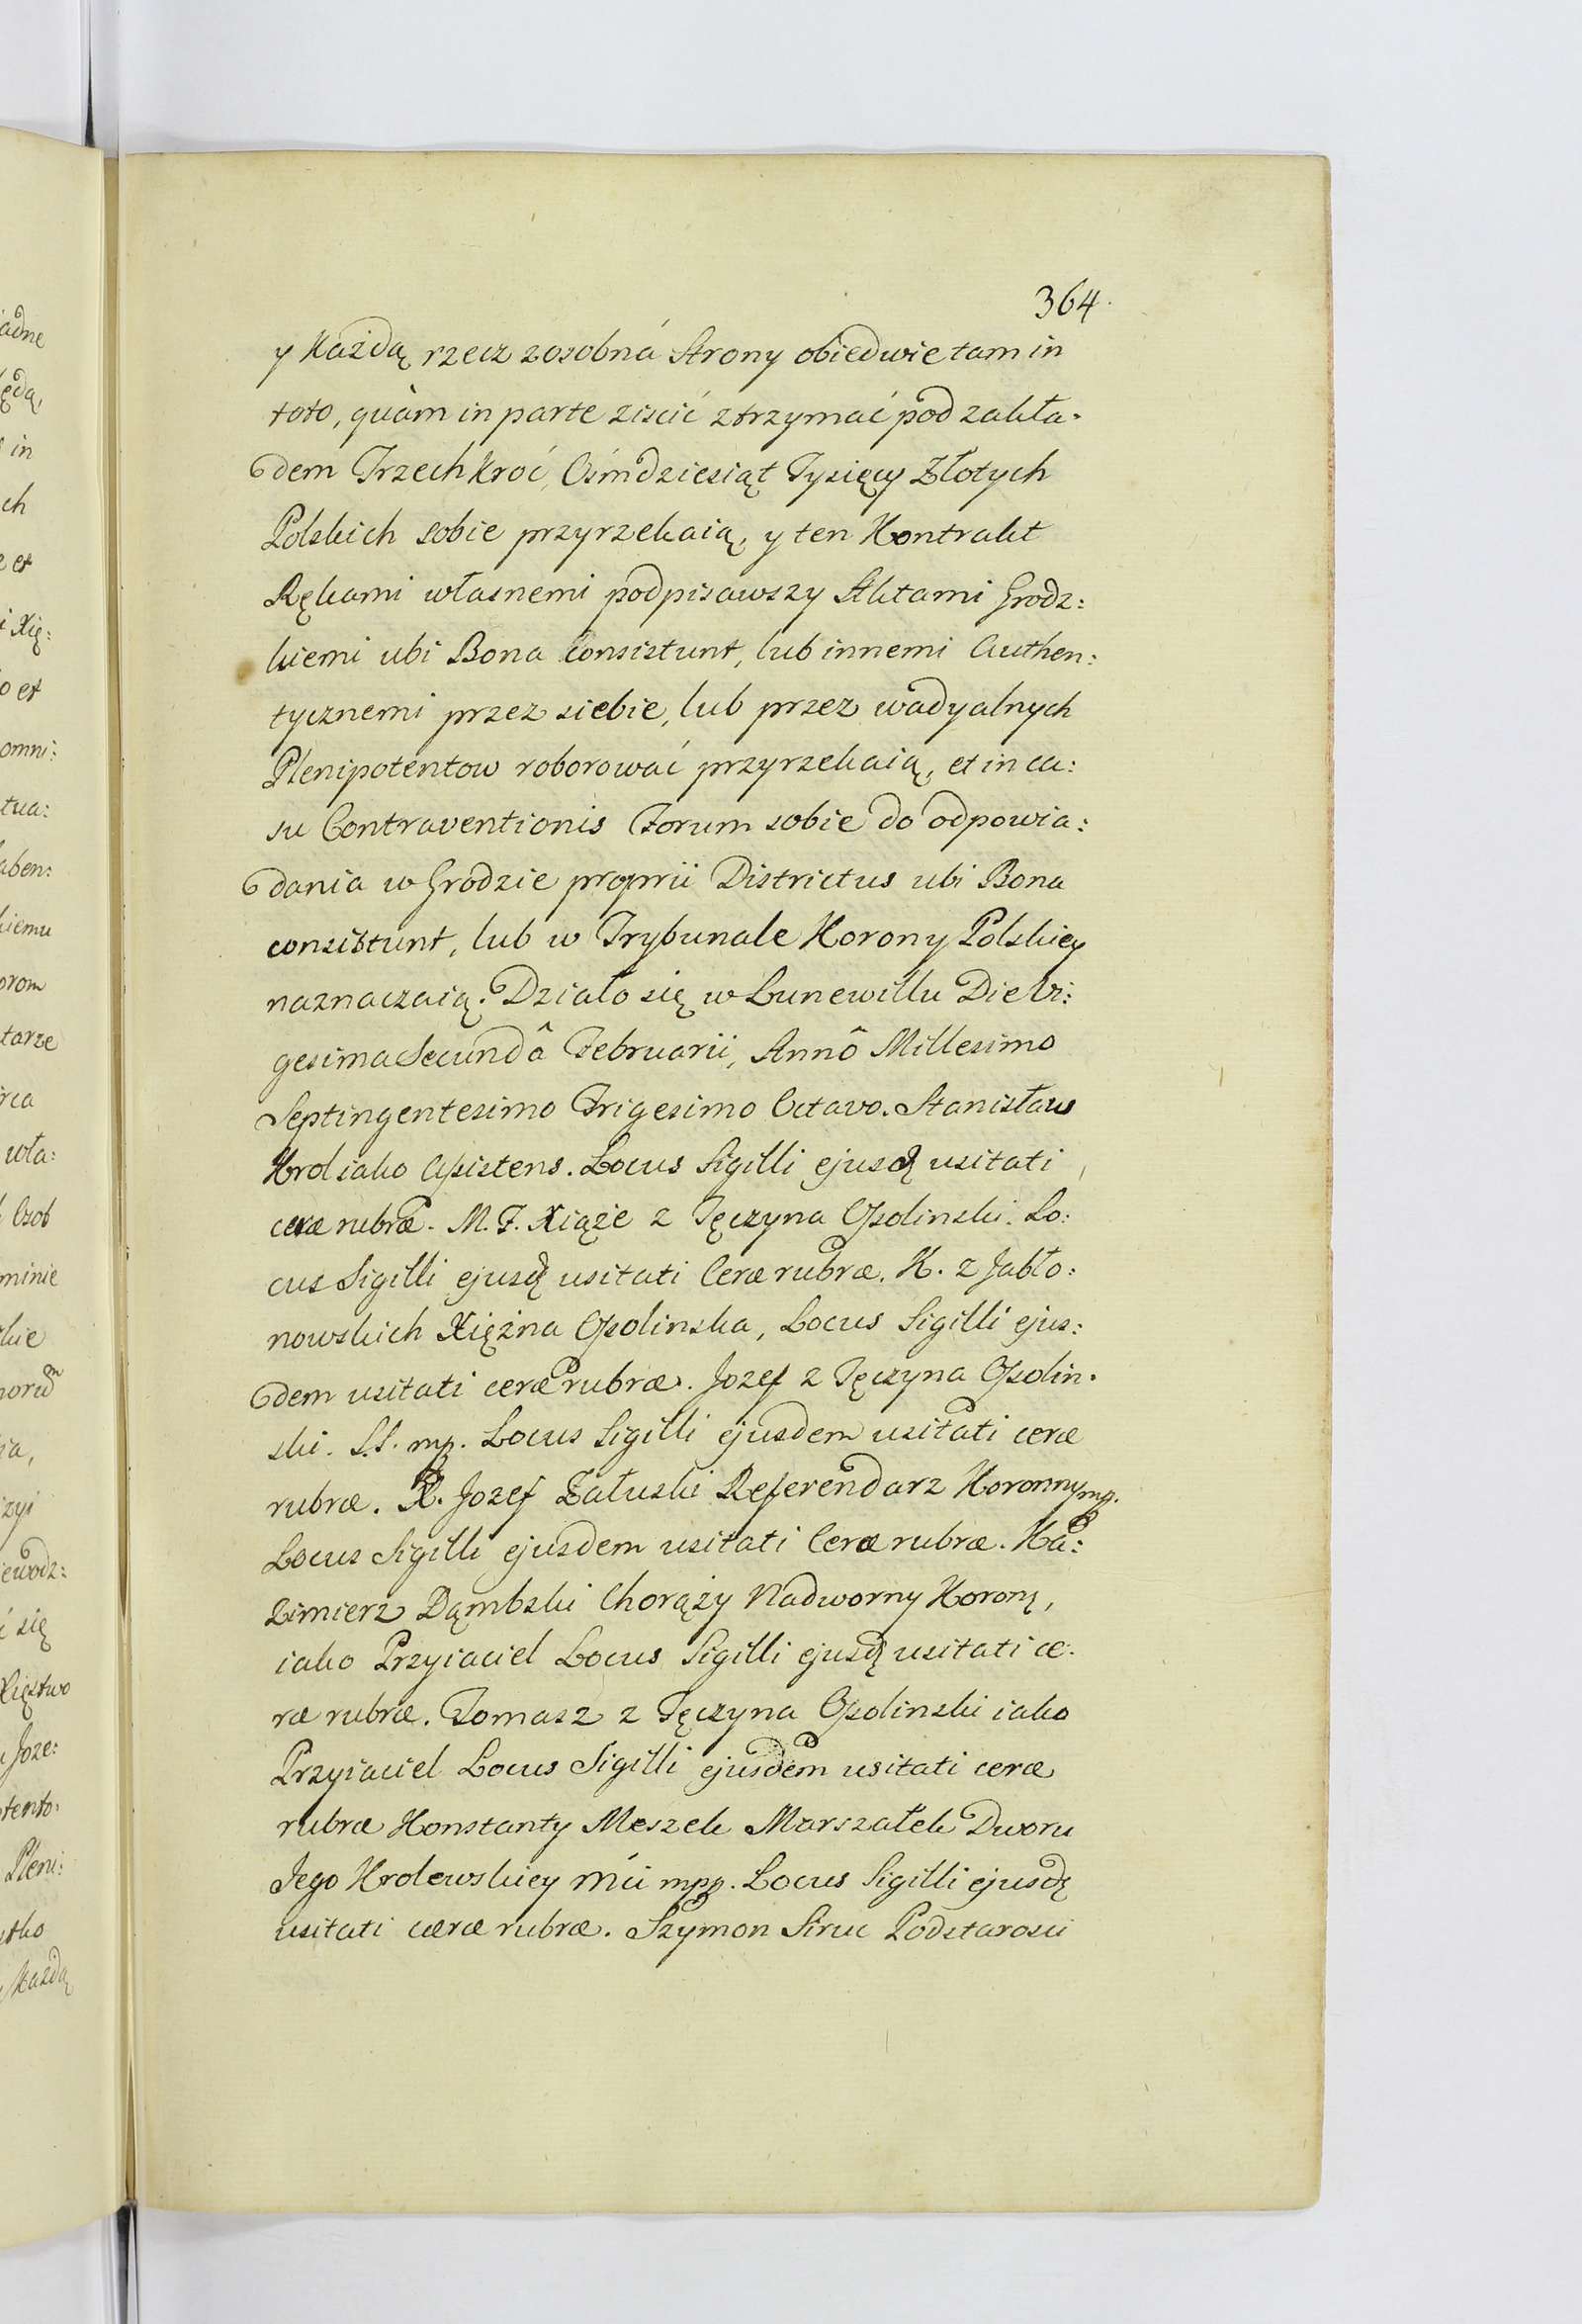 364.
y Każdą rzecz zosobná Strony obiedwie tam in
toto, quàm in parte ziscić ztrzymać pod zakła-
dem Trzech kroć, Ośmdziesiąt Tysięcy Złotych
Polskich sobie przyrzekaią, y ten Kontrakt
Rękami własnemi podpisawszy Aktami Grodz:
kiemi ubi Bona Consistunt, lub innemi Authen:
tycznemi przez siebie, lub przez wadyalnych
Plenipotentow roborować przyrzekaią, et in ca:
su Contraventionis Forum sobie do odpowia:
dania w Grodzie proprii Districtus ubi Bona
consistunt, lub w Trybunale Korony Polskiey
naznaczaią. Działo się w Lunewillu Die Vi:
gesima Secundâ Februarii, Annô Millesimo
Septingentesimo Trigesimo Octavo. Stanisław
Krol iako Assistens. Locus Sigilli ejusdę usitati
ceræ rubræ. M. F. Xiąże z Tęczyna Ossolinski. Lo:
cus Sigilli ejusdę usitati Ceræ rubræ. K. z Jabło:
nowskich Xiężna Ossolinska, Locus Sigilli ejus:
dem usitati ceræ rubræ. Jozef z Tęczyna Ossolin-
ski. S.S. mp. Locus Sigilli ejusdem usitati ceræ
rubræ. X. Jozef Załuski Referendarz Koronny mp.
Locus Sigilli ejusdem usitati Ceræ rubræ. Ka:
zimierz Dąmbski Chorąży Nadworny Koronę,
iako Przyiaciel Locus Sigilli ejusdę usitati ce:
ræ rubræ. Tomasz z Tęczyna Ossolinski iako
Przyiaciel Locus Sigilli ejusdem usitati ceræ
rubræ Konstanty Meszek Marszałek Dworu
Jego Krolewskiey Mći mpp. Locus Sigilli ejusdę
usitati ceræ rubræ. Szymon Siruc Podstarosci